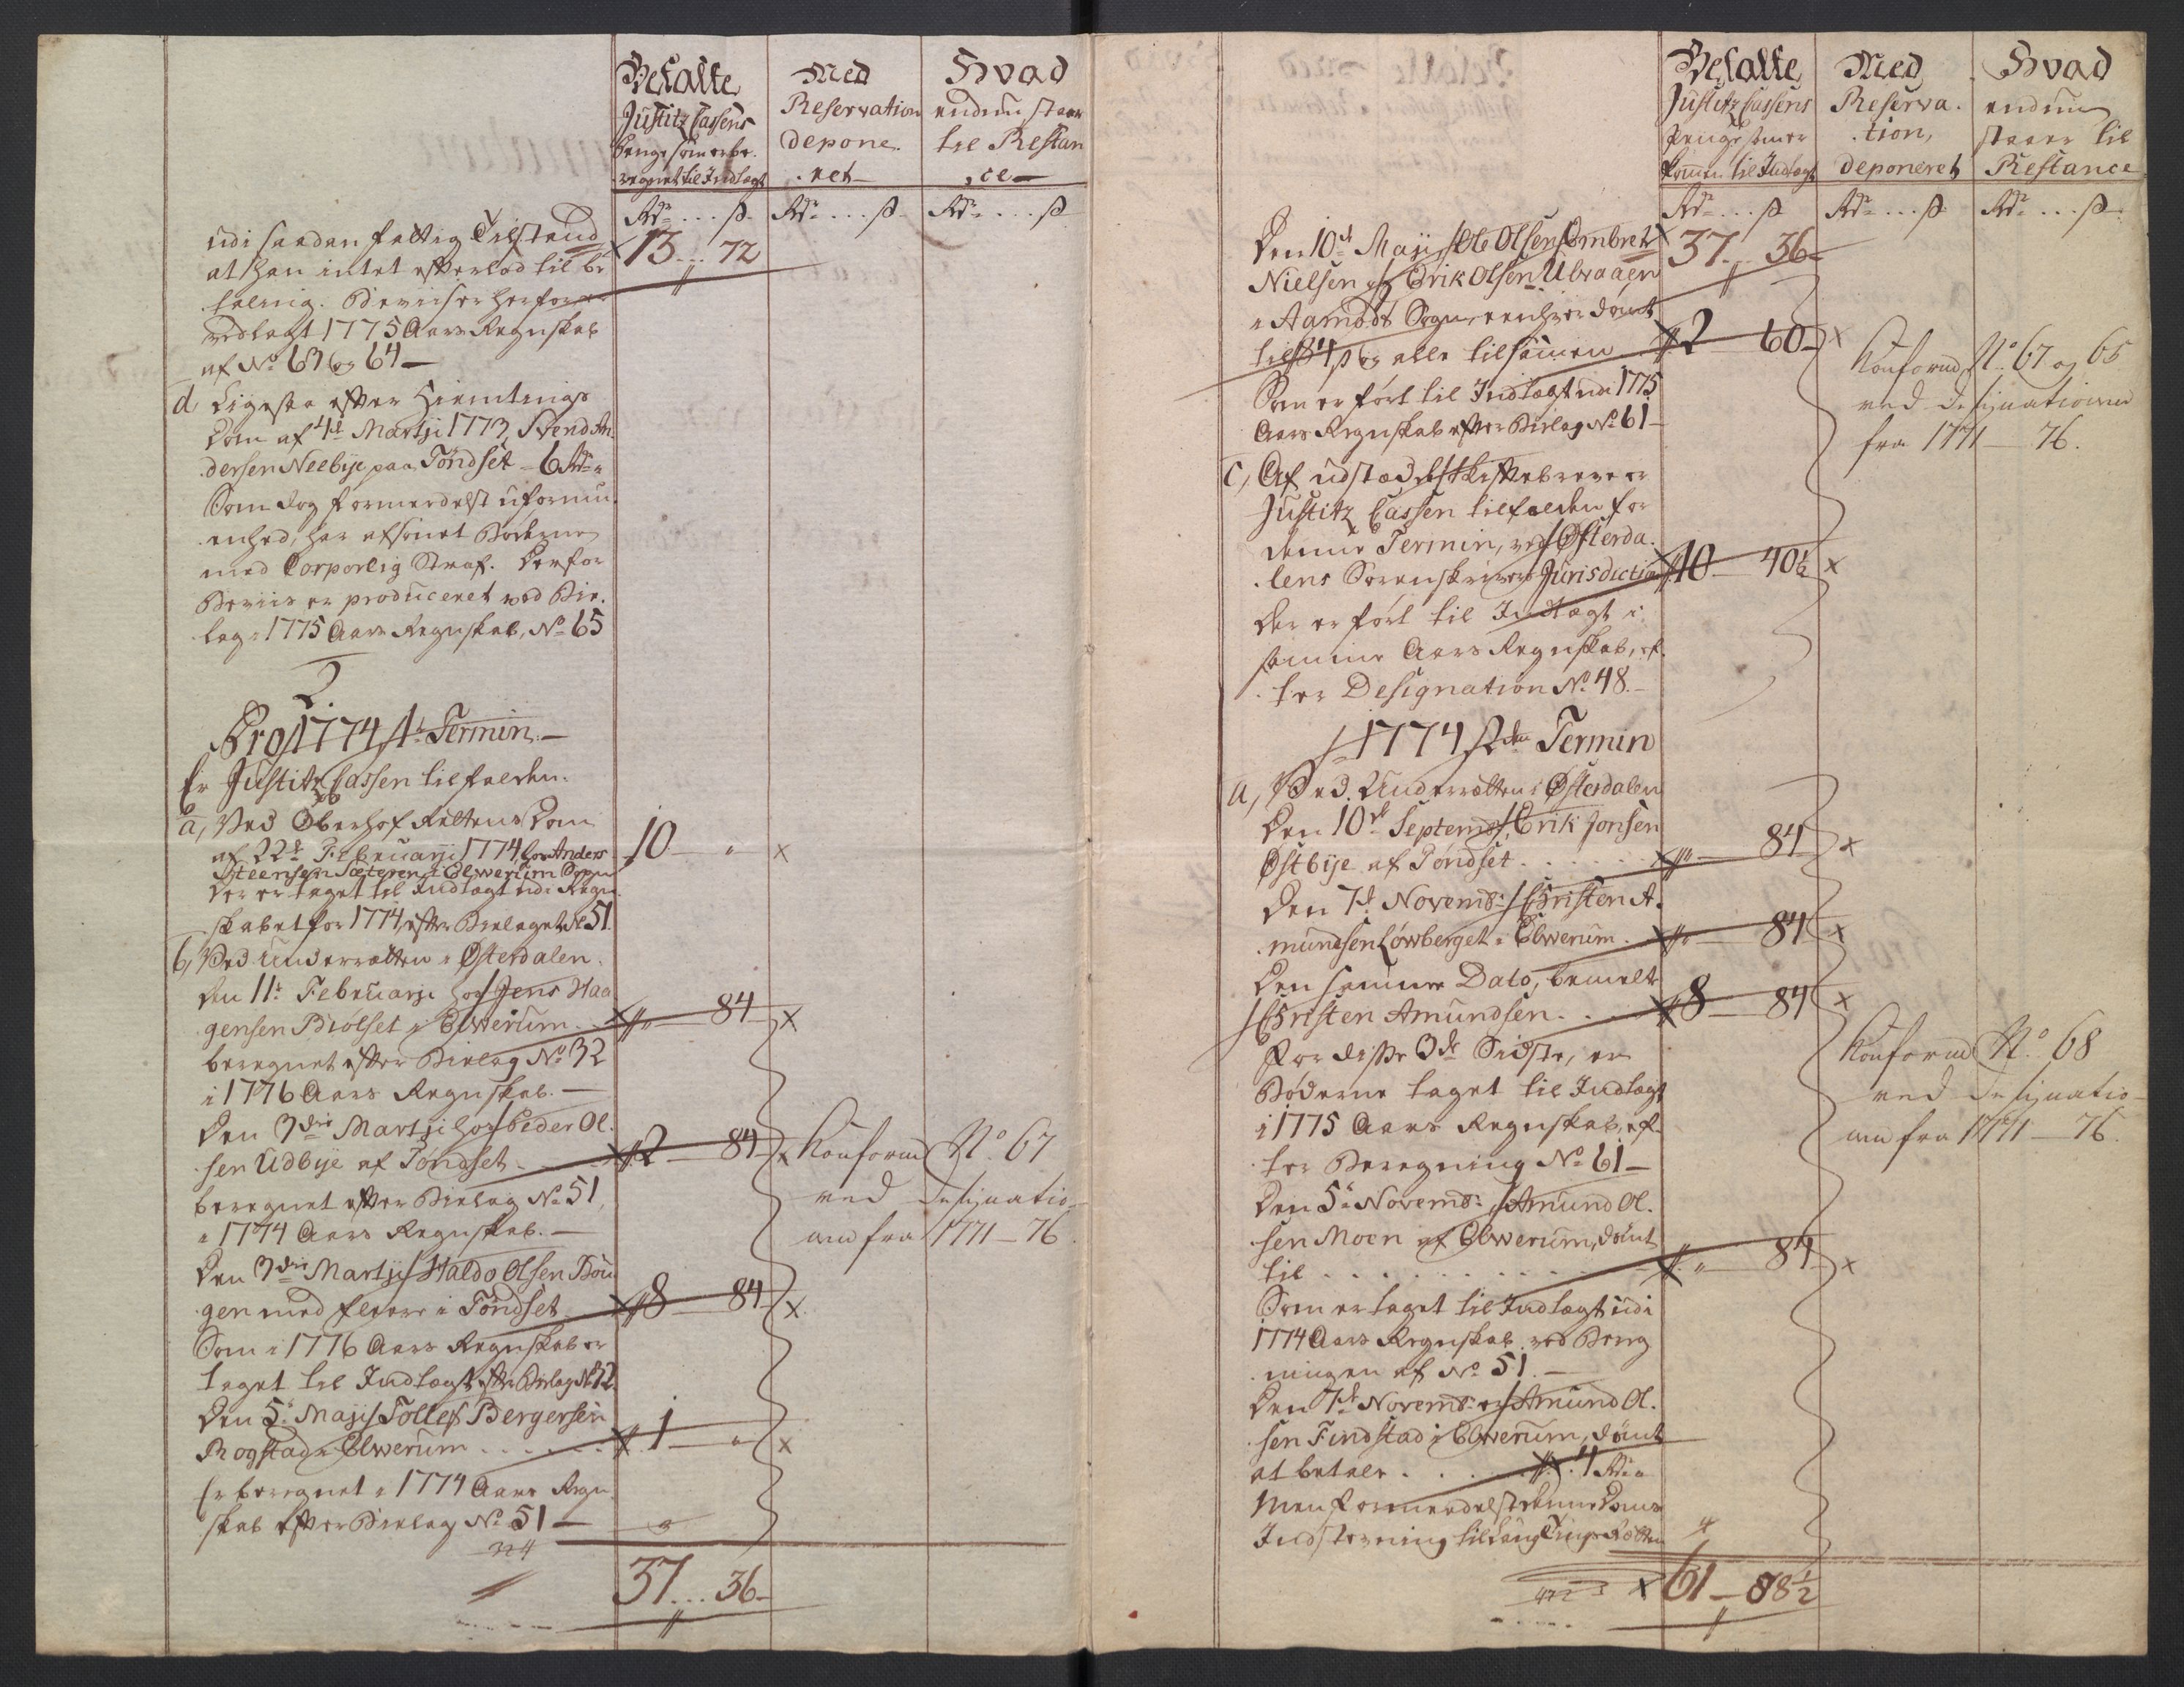 Betalte
Justitz Cassens
Penge som er be-
regnet til Indtægt
Med
Reservation
depone-
ret
Hvad
endnu staar
til Restan
ce
Rdr ... ß Rdr ... ß Rdr ... ß
udi saadan fattig Tilstand
at han intet efterlod til be 13 ... 72
taling. Beviiser herfor er
vedlagt 1775 Aars Regnskab
af No 63 og 64
d, Ligesaa efter Hiemtings
Dom af 4de Martji 1773, Svend An-
dersen Neebye paa Tøndset - 6 Rdr
Som dog formedelst uformu-
enhed, har afsonet Bøderne
med Corporlig Straf. Derfor
Beviis er produceret ved Bie-
lag i 1775 Aars Regnskab, No 65
2.
Pro 1774 1te Termin.
Er Justitz Cassen tilfalden.
a, Ved Oberhof Rettens Dom
af 22de Februarji 1774, hos Anders 10 - " x
Steensen Sæteren i Elwerum Sogn
der er taget til Indtægt udi Regn-
skabet for 1774, efter Bielaget No 51.
b, Ved Underrætten i Østerdalen
den 11te Februarji hos Jens Haa
gensen Biølset i Elwerum .. " 84 x
beregnet efter Bielag No 32
i 1776 Aars Regnskab.
Den 3die Martji hos Peder Ol-
sen Udbye af Tøndset 2 - 84 x
beregnet efter Bielag No 51,
i 1774 Aars Regnskab.
Konform No 67
ved designatio-
nen fra 1771-76.
Den 3die Martji Haldo Olsen Bou
gen med fleere i Tøndset 8 - 84 x
Som i 1776 Aars Regnskab er
taget til Indtægt efter Bielag No 32
Den 5te Maji Tollef Bergersen
Rogstad i Elwerum ...... 1 - " x
Er beregnet i 1774 Aars Regn-
skab efter Bielag No 51
37 ... 36
Betalte
Justitz Cassens
Penge som er
til Indtægt
Med
Reserva-
tion,
deponeret
Hvad
endnu
staaer til
Restance
Rdr ... ß Rdr ... ß Rdr ... ß
Den 10de Maji Ole Olsen Ombret 37 .. 36
Nielsen og Erik Olsen Ubraaen
i Aamodt Sogn, eenhver dømt
til 84 ß og alle tilsamen 2 - 60 x
Som er ført til Indtægt udi 1775
Aars Regnskab efter Bielag No 61
Konform No 67 og 65
ved designationen
fra 1771-76.
c, Af udstædde Skiftebreve er
Justitz Cassen tilfalden for
denne Termin, ved Østerda-
lens Sorenskriver Jurisdiction 10 - 40½ x
der er ført til Indtægt i
samme Aars Regnskab, ef-
ter Designation No 48.
1774 2den Termin
a, Ved Underrætten i Østerdalen
Den 10de Septembr Erik Jonsen
Østbye af Tøndset ...... " 84 x
Den 7de Novembr: Christen A-
mundsen Løwberget i Elwerum. " 84 x
Den samme Dato, bemelte
Christen Amundsen. .. 8 - 84 x
For disse 3de Sidste, er
Bøderne taget til Indtægt
i 1775 Aars Regnskab, ef-
ter Beregning No 61
Konform No 68
ved designatio-
nen fra 1771-76.
Den 5te Novembr: Amund Ol-
sen Moen af Elwerum, dømt
til .......... " 84 x
Som er taget til Indtægt udi
1774 Aars Regnskab ved Bereg
ningen af No 51.
Den 7de Novembr er Amund Ol-
sen Findstad i Elwerum, dømt
at betale ..... 4 Rdr
Men formedelst denne Doms
Indstevning til LaugTings Rætten
61 - 88½